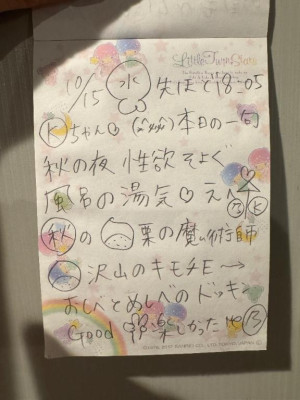 Little Twin Stars
10/15 水 先ほど18:05
Kちゃん♡ 本日の一句
秋の夜 性欲そよぐ
風呂の湯気♡ え〜
秋の 栗の魔い術師
沢山のキモチE→
おしべとめしべのドッキン
Good 楽しかった B